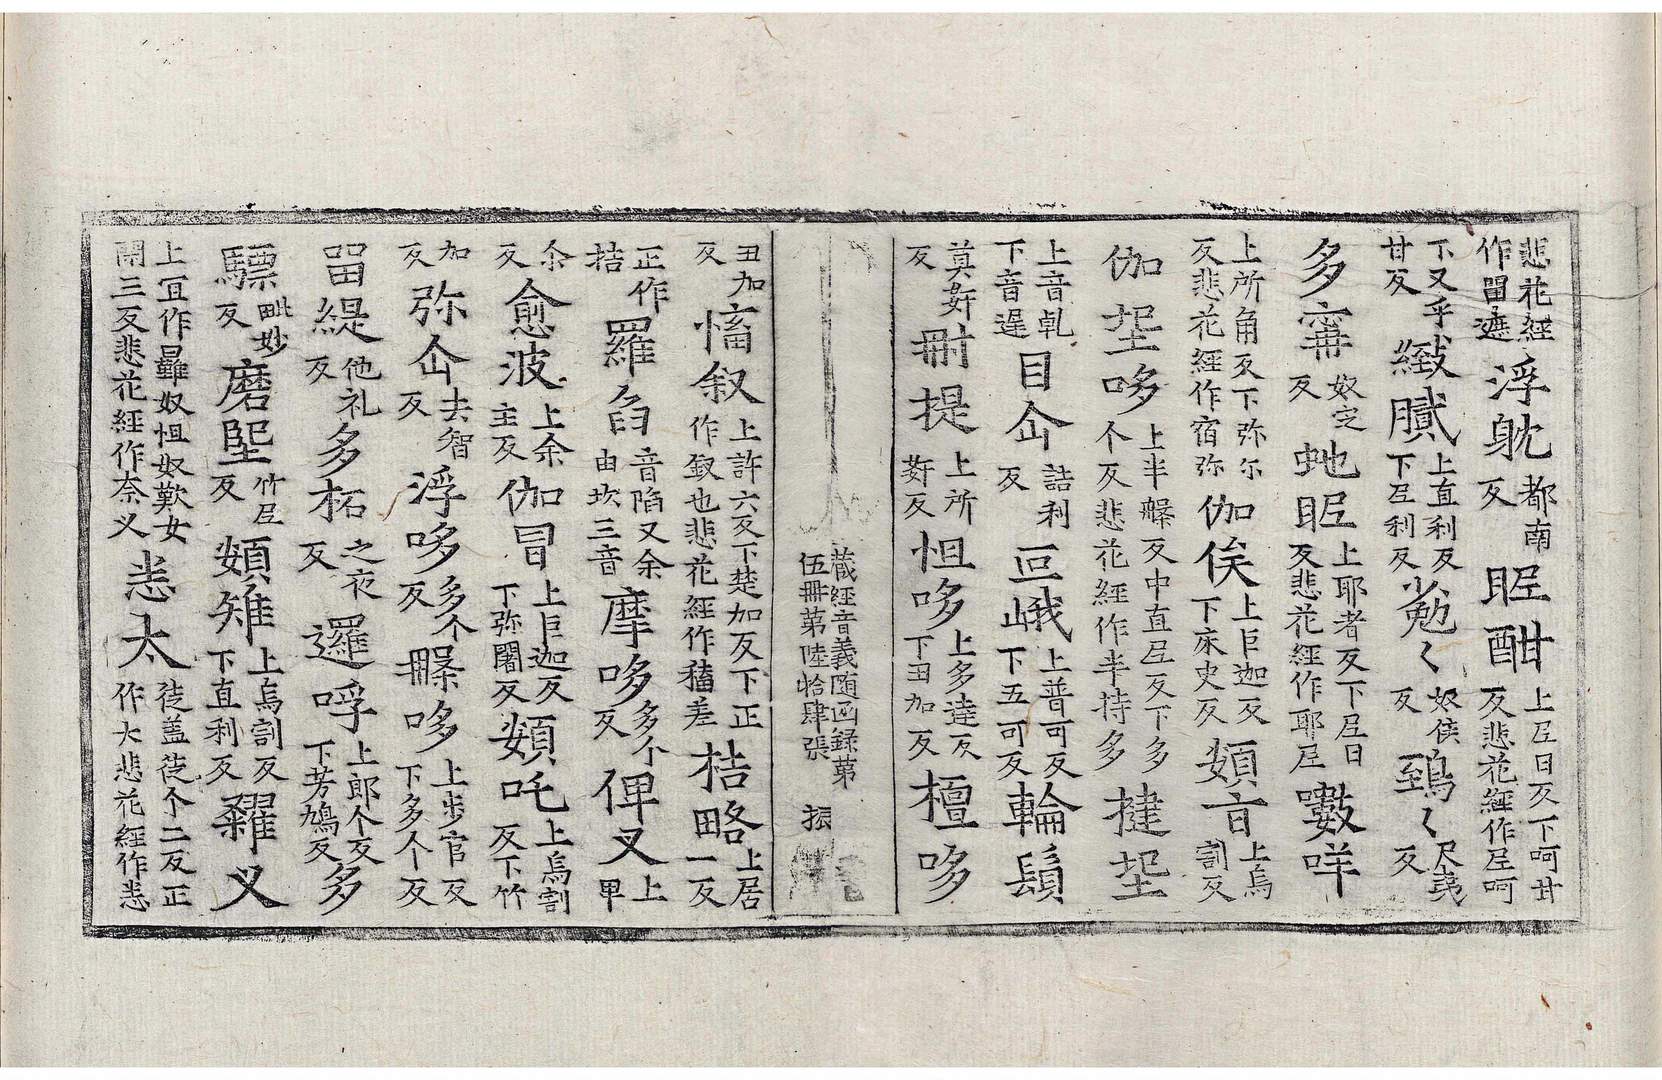 悲花經作畱遮浮躭都南反眤酣上𡰱日反下呵甘反悲花經作𡰱呵
下又乎甘反緻膩上直利反下𡰱利反㝹〻奴侯反鵄〻尺夷反
多𡨴奴定反虵眤上耶者反下𡰱日反悲花經作耶𡰱咩
上所角反下弥尔反悲花經作宿弥伽俟上巨迦反下床史反頞上烏割反
伽坙哆上半反中直𡰱反下多个反悲花經作半持多揵坙
上音乹下音遅目企詰利反叵峨上普可反下五可反輪鬚
莫奸反𠕋提上所奸反怛哆上多達反下丑加反檀哆
藏經音義随函録第伍冊第陸拾肆張 振
丑加反慉叙上許六反下楚加反下正作釵也悲花經作稸差桔略上居一反
正作拮羅舀音陷又余由坎三音摩哆多个反俾叉上卑
尒反愈波上余主反伽冒上巨迦反下弥闍反頞吒上烏割反下竹
加反弥企去智反浮哆多个反哆上步官反下多个反
畱緹他礼反多柘之夜反邏呼上郎个反下芳鳩反多
驃毗妙反磨坙竹𡰱反頞雉上烏割反下直利反义
上宜作奴怛奴歎女閑三反悲花經作奈义恙太徒盖徒个二反正作大悲花經作恙